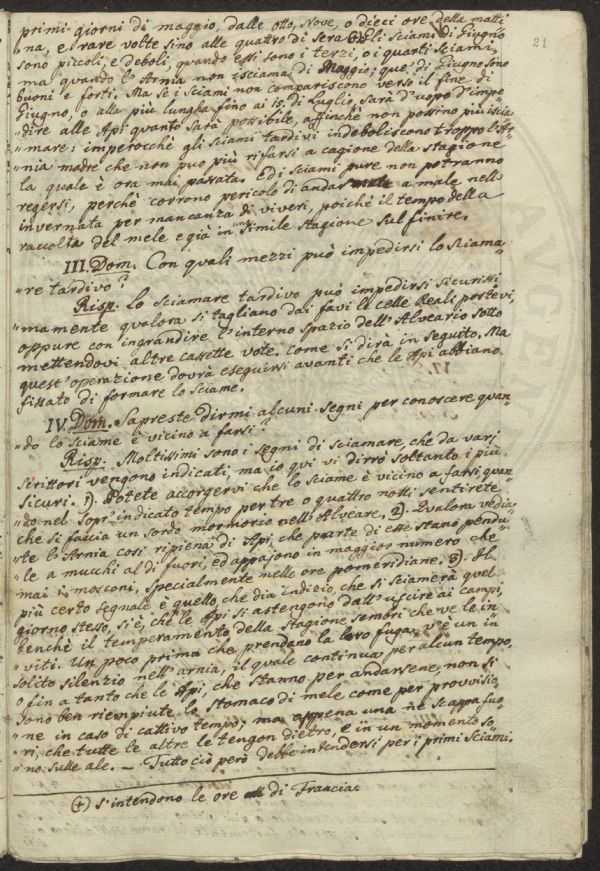 21
primi giorni di maggio, dalle otto, nove, o dieci ore della matti
na, e rare volte sino alle quattro di sera (+) Gli Sciami di Giugno
sono piccoli, e deboli, quando essi sono i terzi, o i quarti Sciami,
ma quando l'Arnia non isciama di Maggio; que' di Giugno sono
buoni e forti. Ma se i sciami non compariscono verso il fine di
Giugno, o alla più lungha fino ai 15. di Luglio, sarà d'uopo d'impe
"dire alle Api quanto sarà possibile, affinchè non possino più iscia
"mare: imperochè gli sciami tardivi indeboliscono troppo l'Ar
"nia madre che non puo più rifarsi a cagione della stagione
la quale è ora mai passata. Ed i sciami pure non potranno
regersi, perchè corrono pericolo di andar a male nell
invernata per mancanza di viveri, poichè il tempo della
raccolta del mele e già in una simile stagione sul finire.
III. Dom. Con quali mezzi può impedirsi lo sciama
"re tardivo?
Risp. Lo sciamare tardivo può impedirsi sicurissi
"mamente qualora si tagliano dai favi le celle Reali postevi,
oppure con ingrandire l'interno spazio dell'Alveario sotto
mettendovi altre cassette vote. Come si dirà in seguito. Ma
quest'operazione dovrà eseguirsi avanti che le Api abbiano
fissato di formare lo sciame.
IV. Dom. Sapreste dirmi alcuni segni per conoscere quan
"do lo sciame è vicino a farsi?
Risp. Moltissimi sono i segni di sciamare, che da varj
scrittori vengono indicati, ma io qui vi dirrò soltanto i più
sicuri. 1). Potete accorgervi che lo sciame è vicino a farsi quan
"do nel sopr'indicato tempo per tre o quattro notti sentirete
che si faccia un sordo mormorio nell'Alveare. 2). Qualora vedia
"te l'Arnia cosi ripiena di Api, che parte di esse stano pendu
"le a mucchi al di fuori, ed appajono in maggior numero che
mai i mosconi, specialmente nelle ore pomeridiane. 3). Il
più certo segnale è quello, che dia indizio, che si sciamerà quel
giorno stesso, si è, che le Api si astengono dall'uscire ai campi,
benchè il temperamento della stagione sembri che ve le in
"viti. Un poco prima che prendano la loro fuga, v'è un in
solito silenzio nell'arnia, il quale continua per alcun tempo,
o fin a tanto che le Api, che stanno per andarsene, non si
sono ben riempiute lo stomaco di mele come per provvisio
"ne in caso di cattivo tempo; ma appena una ne scappa fuo
"ri, che tutte le altre le tengon dietro, e in un momento so
"no sulle ale. — Tutto ciò però debbe intendersi per i primi sciami.
(+) s'intendono le ore di Francia.